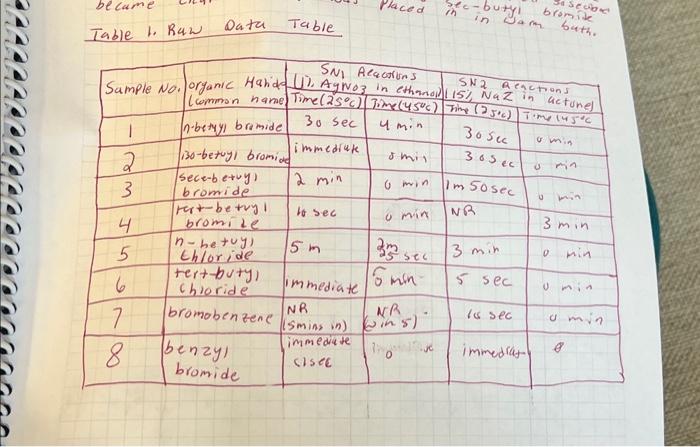 became
Placed in sec-butyl bromide
in warm bath.
Table 1. Raw Data Table
Sample No. organic Halide (common name) SN1 Reactions (1% AgNO3 in ethanol) SN2 Reactions (15% NaI in actone)
Time (25°C) Time (45°C) Time (25°C) Time 45°C
1 n-betuyl bromide 30 sec 4 min 30 sec 0 min
2 iso-betuyl bromide immediate 0 min 30 sec 0 min
3 sece-betuyl bromide 2 min 0 min 1m 50sec 0 min
4 tert-betuyl bromide 10 sec 0 min NR 3 min
5 n-betuyl chloride 5 m 2m 25 sec 3 min 0 min
6 tert-butyl chloride immediate 0 min 5 sec 0 min
7 bromobenzene NR (5mins in) NR 10 sec 0 min
8 benzyl bromide immediate <1sec 0 immediate 0